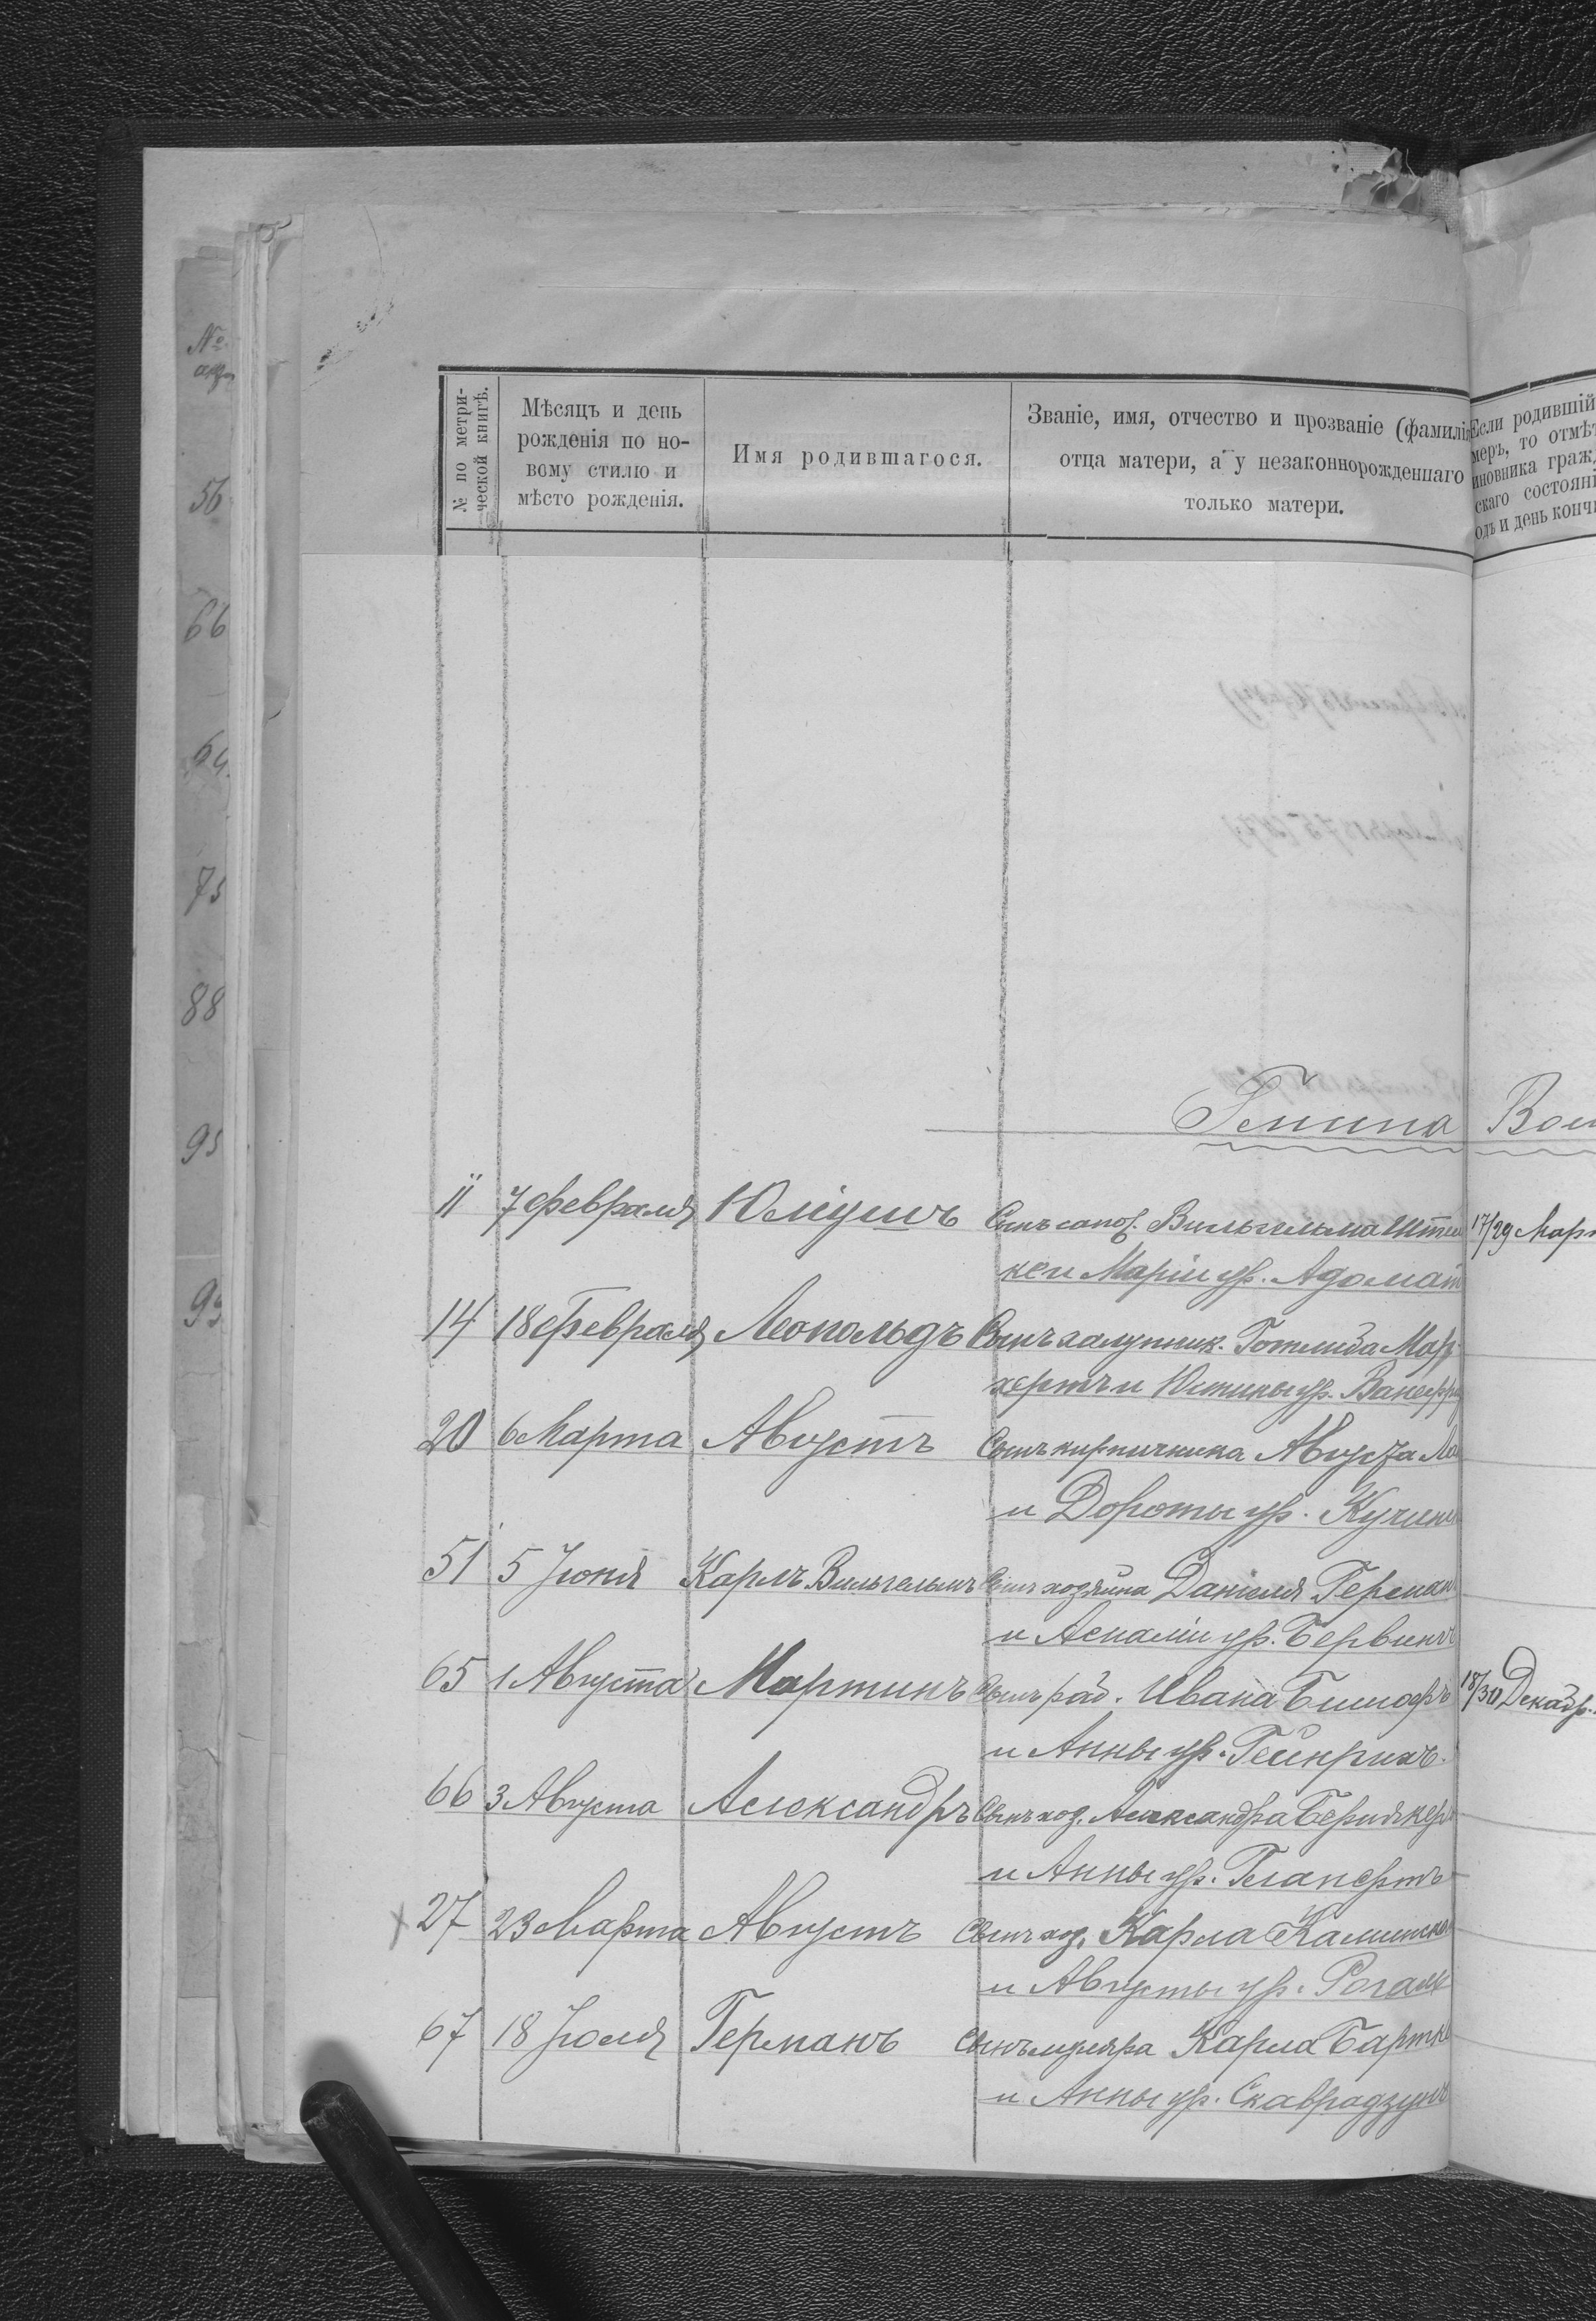 № по метри-
ческой книгѣ.
Мѣсяцъ и день
рожденія по но-
вому стилю и
мѣсто рожденія.
Имя родившагося.
Званіе, имя, отчество и прозваніе (фамилія
отца матери, а у незаконнорожденнаго
только матери.
Если родившій
меръ, то отмѣт
иновника граж
скаго состоян
одъ и день конч
№
56
66
64
75
88
95
Гмина
11 7 февраля Юліушъ Сынъ сапож. Вильгельма Штей 17/29 Март
ке и Маріи ур. Адомат
14 18 Февраля Леопольдъ Сынъ халупник. Готлиба Мар
хертъ и Юстины ур.
20 6 Марта Августъ Сынъ кирпичника Августа
и Дороты ур.
51 5 Іюня Карлъ Вильгельмъ Сынъ хозяина Даніеля Герман
и Амаліи ур. Бервинъ
65 1 Августа Мартинъ Сынъ раб. Ивана Бишофъ 18/30 Декабр.
и Анны ур. Гейнрихъ.
66 3 Августа Александръ Сынъ хоз. Александра
и Анны ур.
27 23 Марта Августъ Сынъ хоз. Карла Каминска
и Августы ур. Рогал
67 18 Іюля Германъ Сынъ муляра Карла Бартк
и Анны ур. Скаврадзунъ